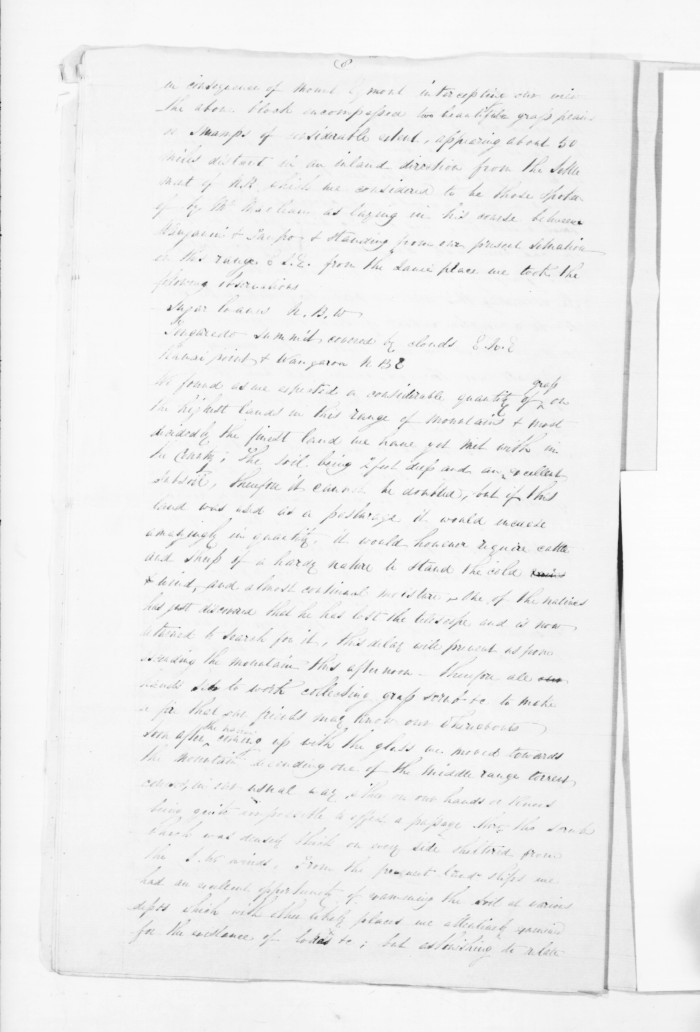 8
in consequence of Mount Egmont intercepting our view
the above block encompassed two beautiful grass plains
or Swamps of considerable extent, appearing about 50
miles distant in an inland direction from the Settle
ment of N.P. which we considered to be those spoken
of by Mr as laying in his course between
& Taupo & standing from our present situation
in this range E S.E. from the same place we took the
following observations
Sugar loaves N.B.W
Tongaredo Summit covered by clouds E.S.E
point & Wangaroa N B E
We found as we expected a considerable quantity of grass on
the highest lands in this range of mountains & most
decidedly the finest land we have yet met with in
the Country; The soil being 2 feet deep and an excellent
subsoil, therefore it cannot be doubted, but if this
land was used as a pasturage it would increase
amazingly in quantity. it would however require cattle
and sheep of a hardy nature to stand the cold
& wind, and almost continual moisture. One of the natives
has just discovered that he has lost the telescope and is now
returned to search for it, this delay will prevent us from
ascending the mountain this afternoon. Therefore all
hands set to work collecting grass scrub &c to make
a fire that our friends may know our whereabouts
Soon after the native coming up with the glass we moved towards
the mountain ascending one of the middle range
in our usual way, either on our hands or knees
being quite impossible to effect a passage thro the scrub
which was densely thick on every side sheltered from
the S.W. winds. From the present land slips we
had an excellent opportunity of examining the soil at various
depths which with other likely places we attentively examined
for the existance of &c; but astonishing to relate